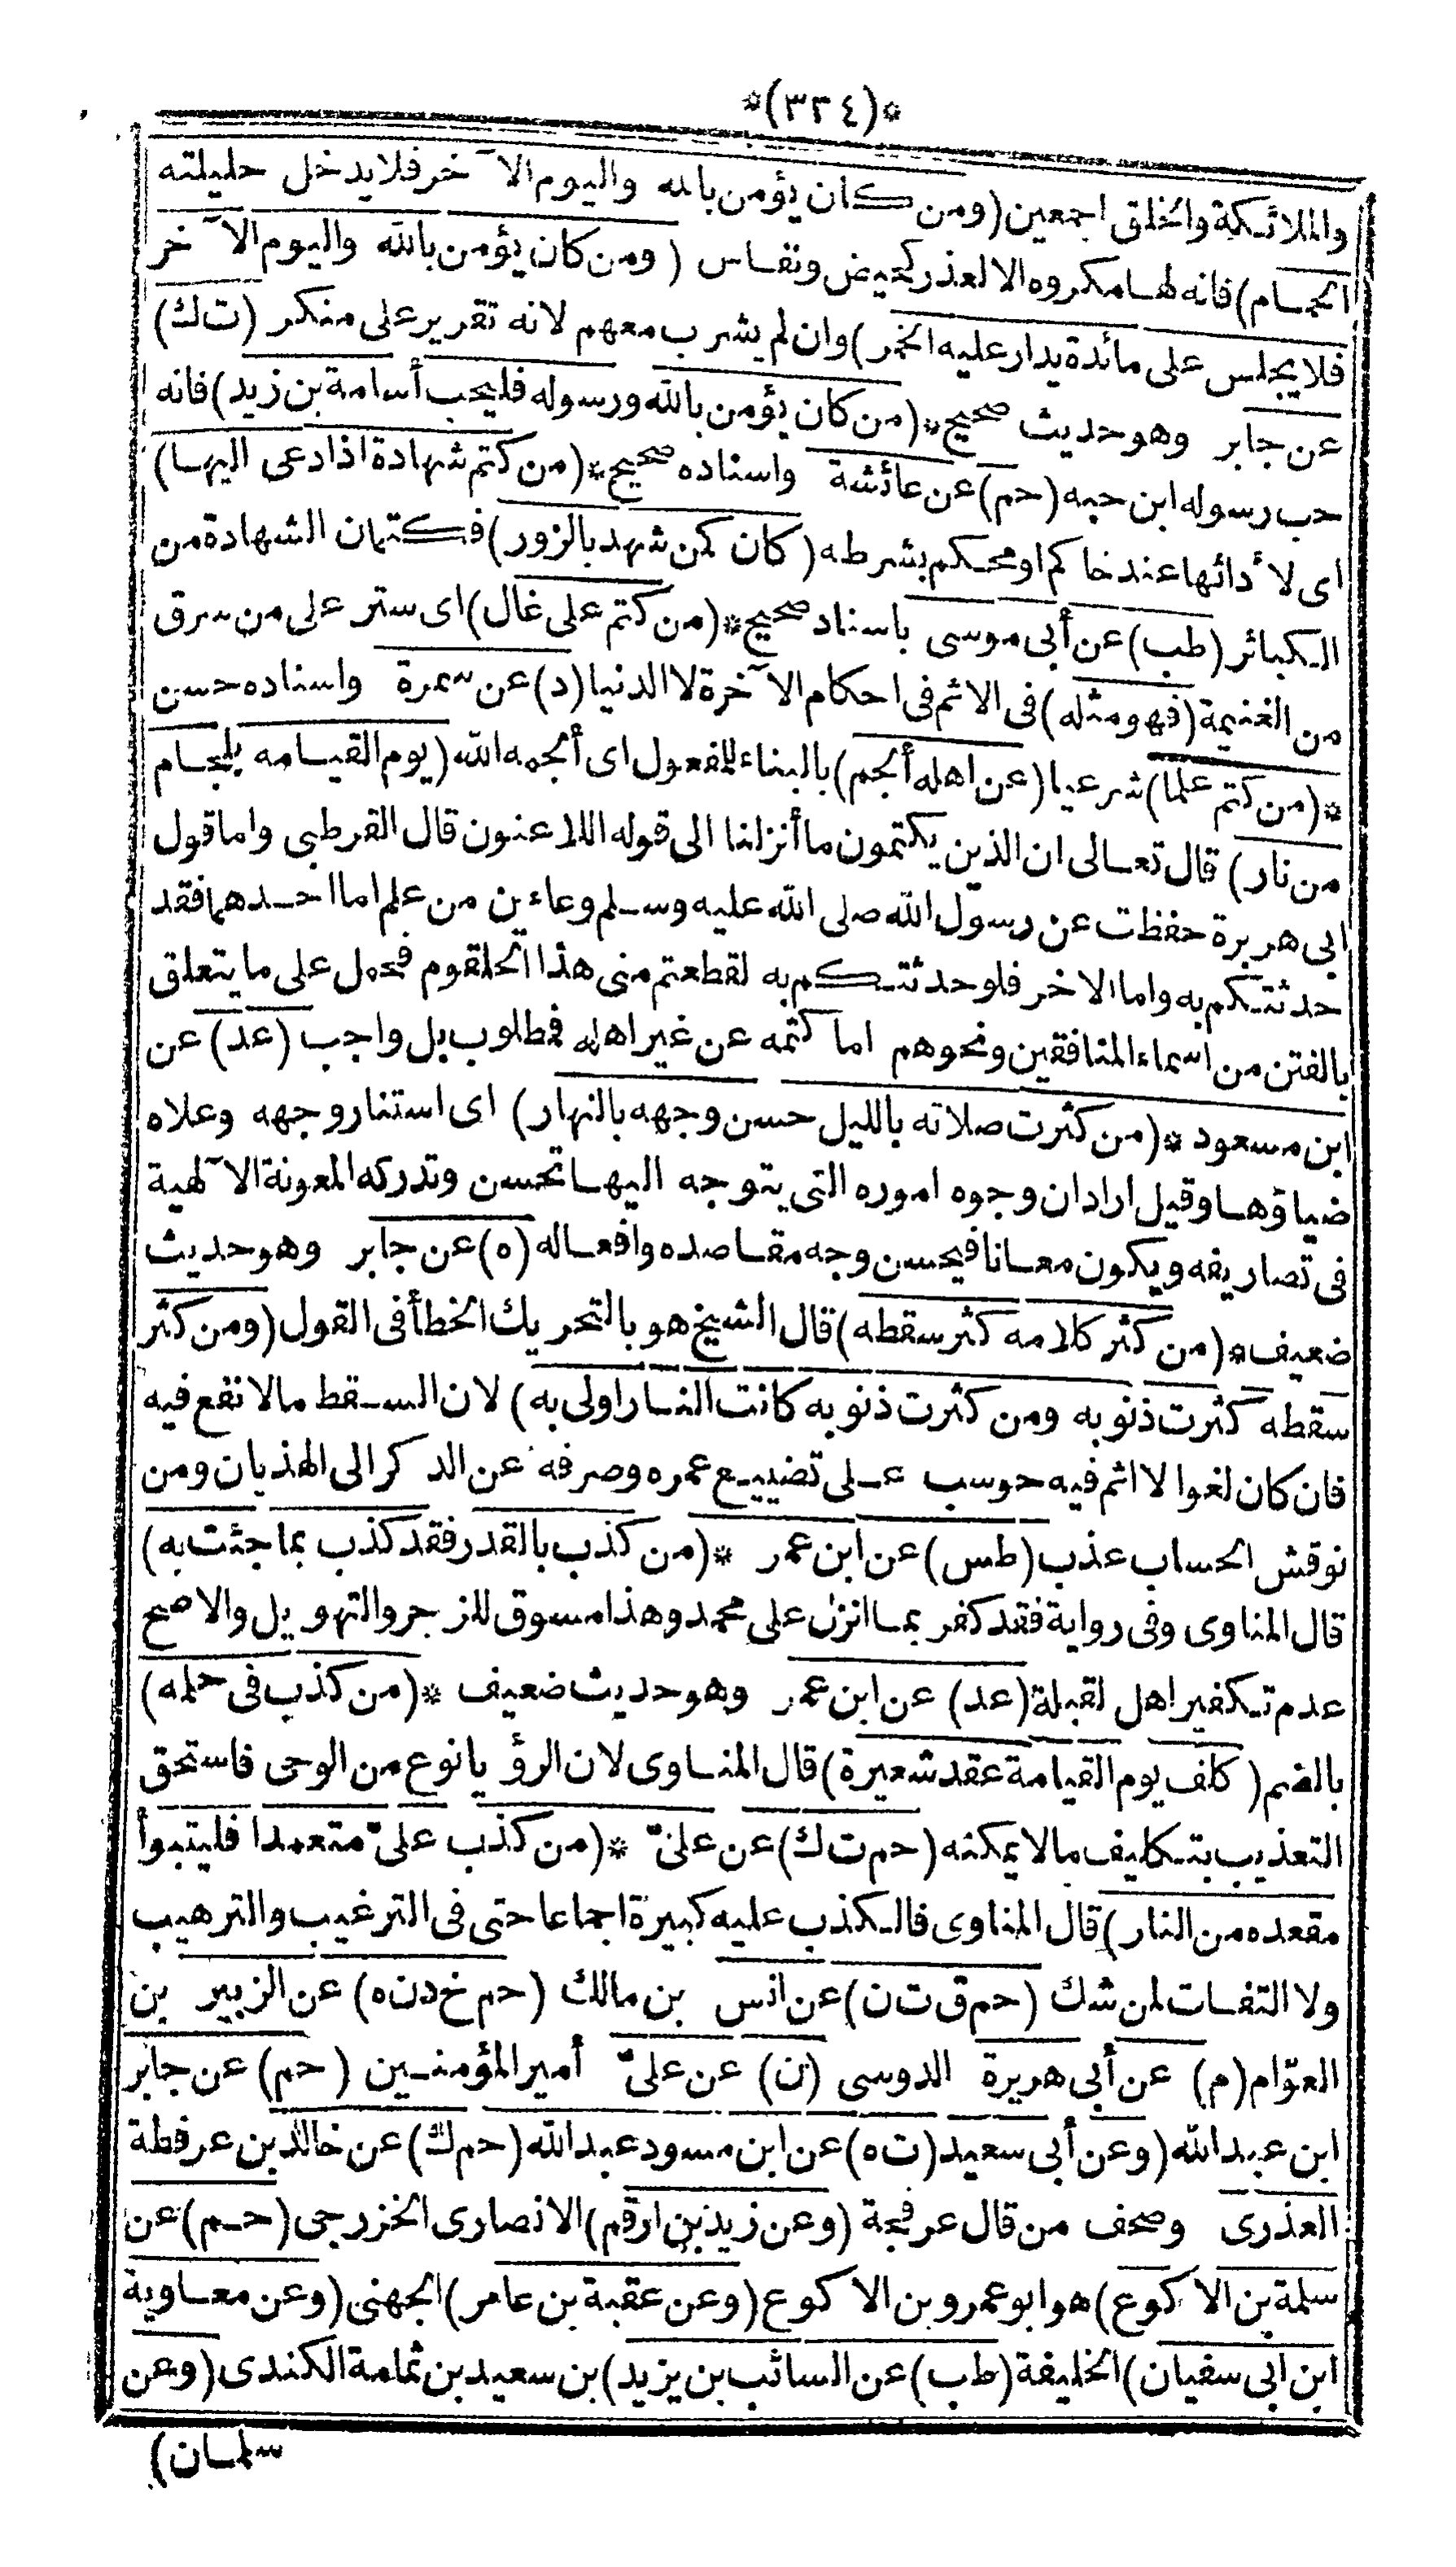 *(٣٣٤)*
والملائكة والخلق اجمعين (ومن كان يؤمن بالله واليوم الآخر فلا يدخل حليلته
الحمام) فانه لها مكروه الا لعذر كحيض ونفاس (ومن كان يؤمن بالله واليوم الآخر
فلا يجلس على مائدة يدار عليه الخمر) وان لم يشرب معهم لانه تقرير على منكر (ت ك)
عن جابر وهو حديث صحيح * (من كان يؤمن بالله ورسوله فليحب أسامة بن زيد) فانه
حب رسوله ابن حبه (حم) عن عائشة واسناده صحيح * (من كتم شهادة اذا دعى اليها)
اى لأدائها عند حاكم او محكم بشرطه (كان كمن شهد بالزور) فكتمان الشهادة من
الكبائر (طب) عن أبى موسى باسناد صحيح * (من كتم على غال) اى ستر على من سرق
من الغنيمة (فهو مثله) فى الاثم فى احكام الآخرة لا الدنيا (د) عن سمرة واسناده حسن
* (من كتم علما) شرعيا (عن اهله ألجم) بالبناء للمفعول اى ألجمه الله (يوم القيامه بلجام
من نار) قال تعالى ان الذين يكتمون ما أنزلنا الى قوله اللاعنون قال القرطبى واما قول
ابى هريرة حفظت عن رسول الله صلى الله عليه وسلم وعاءين من علم اما احدهما فقد
حدثتكم به واما الاخر فلو حدثتكم به لقطعتم منى هذا الحلقوم فحمل على ما يتعلق
بالفتن من اسماء المنافقين ونحوهم اما كتمه عن غير اهله فمطلوب بل واجب (عد) عن
ابن مسعود * (من كثرت صلاته بالليل حسن وجهه بالنهار) اى استنار وجهه وعلاه
ضياؤها وقيل اراد ان وجوه اموره التى يتوجه اليها تحسن وتدركه المعونة الآلهية
فى تصاريفه ويكون معانا فيحسن وجه مقاصده وافعاله (ه) عن جابر وهو حديث
ضعيف * (من كثر كلامه كثر سقطه) قال الشيخ هو بالتحريك الخطأ فى القول (ومن كثر
سقطه كثرت ذنوبه ومن كثرت ذنوبه كانت النار اولى به) لان السقط ما لا نفع فيه
فان كان لغوا لا اثم فيه حوسب على تضييع عمره وصرفه عن الذكر الى الهذيان ومن
نوقش الحساب عذب (طس) عن ابن عمر * (من كذب بالقدر فقد كذب بما جئت به)
قال المناوى وفى رواية فقد كفر بما انزل على محمد وهذا مسوق للزجر والتهويل والاصح
عدم تكفير اهل لقبلة (عد) عن ابن عمر وهو حديث ضعيف * (من كذب فى حلمه)
بالضم (كلف يوم القيامة عقد شعيرة) قال المناوى لان الرؤيا نوع من الوحى فاستحق
التعذيب بتكليف ما لا يمكنه (حم ت ك) عن علىّ * (من كذب علىّ متعمدا فليتبوأ
مقعده من النار) قال المناوى فالكذب عليه كبيرة اجماعا حتى فى الترغيب والترهيب
ولا التفات لمن شك (حم ق ت ن) عن انس بن مالك (حم خ د ن ه) عن الزبير بن
العوّام (م) عن أبى هريرة الدوسى (ن) عن علىّ أمير المؤمنين (حم) عن جابر
ابن عبد الله (وعن أبى سعيد (ت ه) عن ابن مسود عبد الله (حم ك) عن خالد بن عرفطة
العذرى وصحف من قال عرفجة (وعن زيد بن ارقم) الانصارى الخزرجى (حم) عن
سلمة بن الاكوع) هو ابو عمرو بن الاكوع (وعن عقبة بن عامر) الجهنى (وعن معاوية
ابن ابى سفيان) الخليفة (طب) عن السائب بن يزيد) بن سعيد بن ثمامة الكندى (وعن
سلمان)